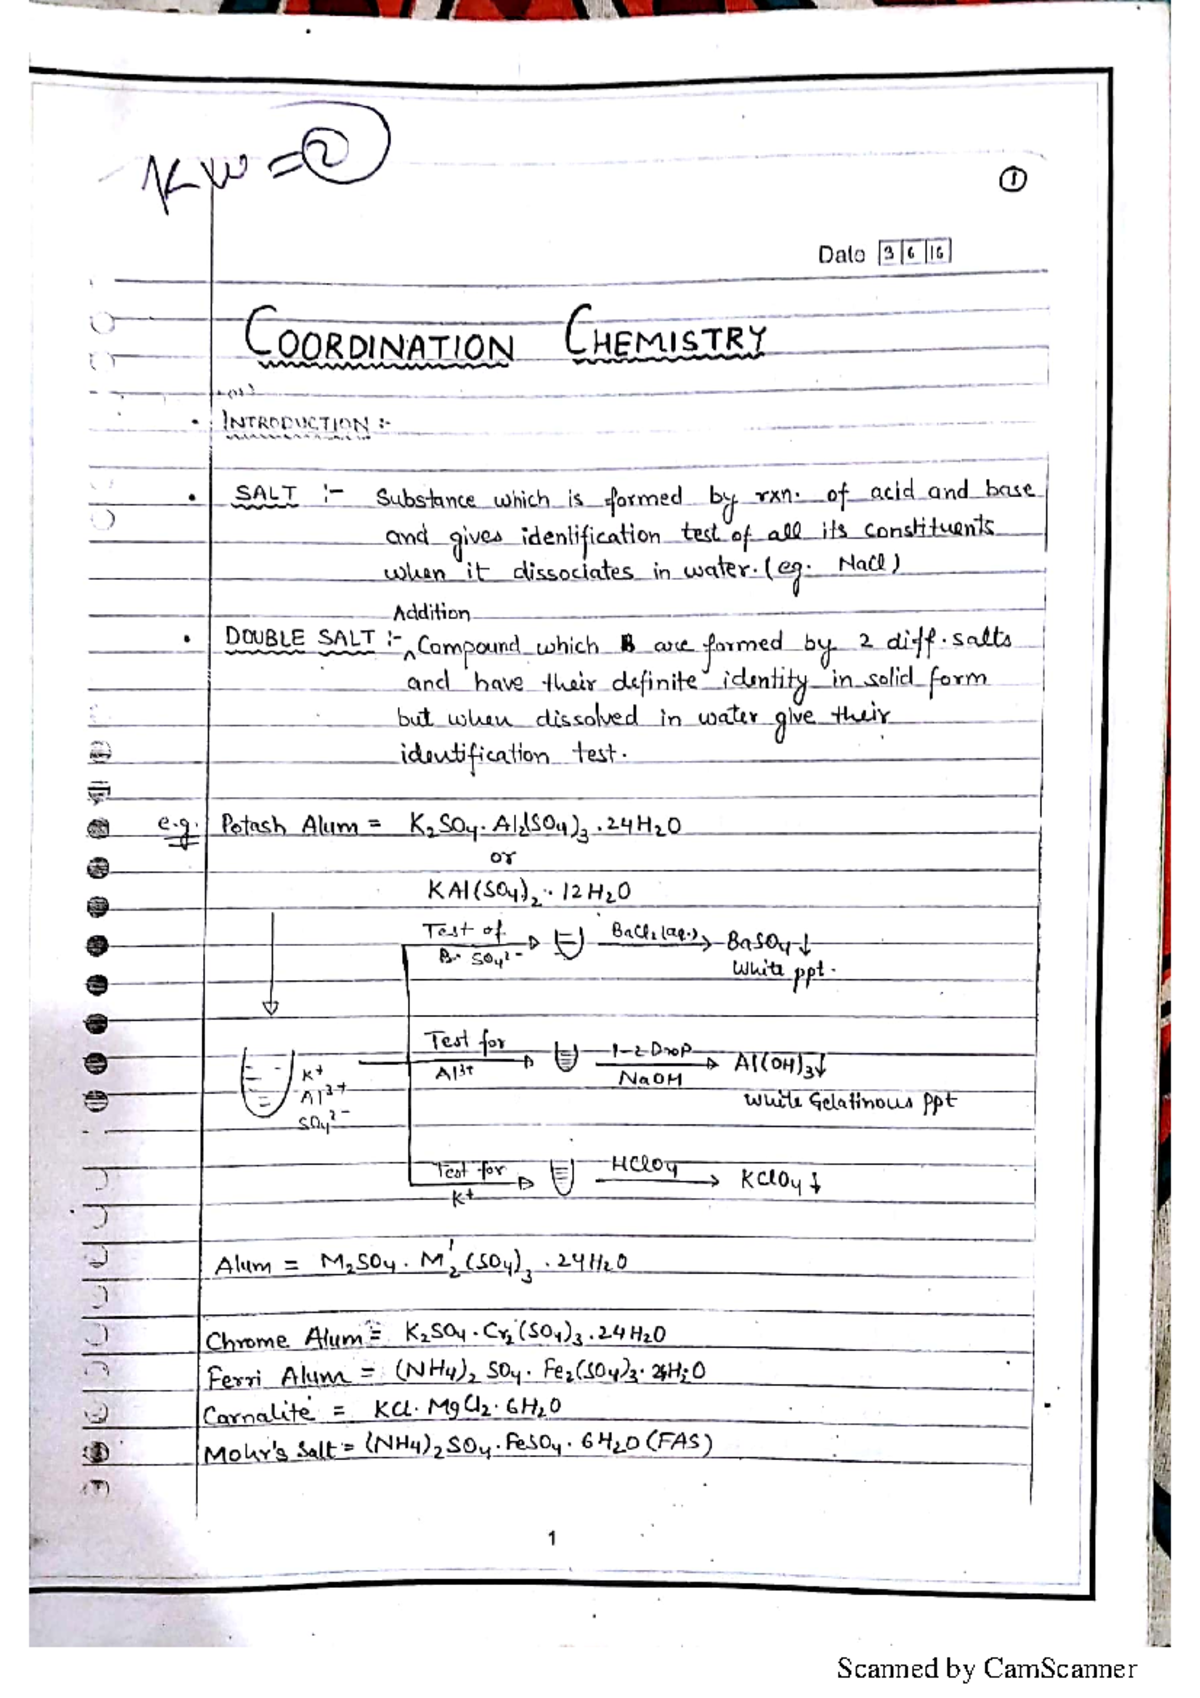 KW = 2
1
Date 3 6 16
COORDINATION CHEMISTRY
• INTRODUCTION :-
• SALT :- Substance which is formed by rxn. of acid and base
and gives identification test of all its constituents
when it dissociates in water. (eg. NaCl)
Addition
• DOUBLE SALT :- ^ Compound which are formed by 2 diff. salts
and have their definite identity in solid form
but when dissolved in water give their
identification test.
e.g. Potash Alum = K₂SO₄. Al₂(SO₄)₃ .24H₂O
or
KAl(SO₄)₂ . 12H₂O
Test of SO₄²⁻ BaCl₂ (aq.) BaSO₄↓
White ppt.
Test for Al³⁺ 1-2 Drop NaOH Al(OH)₃↓
White Gelatinous ppt
K⁺
Al³⁺
SO₄²⁻
Test for K⁺ HClO₄ KClO₄↓
Alum = M₂SO₄. M'₂(SO₄)₃ . 24H₂O
Chrome Alum = K₂SO₄. Cr₂(SO₄)₃.24H₂O
Ferri Alum = (NH₄)₂ SO₄. Fe₂(SO₄)₃. 24H₂O
Carnalite = KCl. MgCl₂. 6H₂O
Mohr's Salt = (NH₄)₂SO₄. FeSO₄. 6H₂O (FAS)
1
Scanned by CamScanner